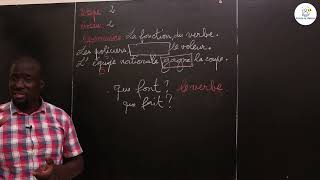 Etape 2
niveau 2
Grammaire : La fonction du verbe.
Les policiers le voleur.
L'équipe nationale gagne la coupe.
que font ? le verbe
que fait ?